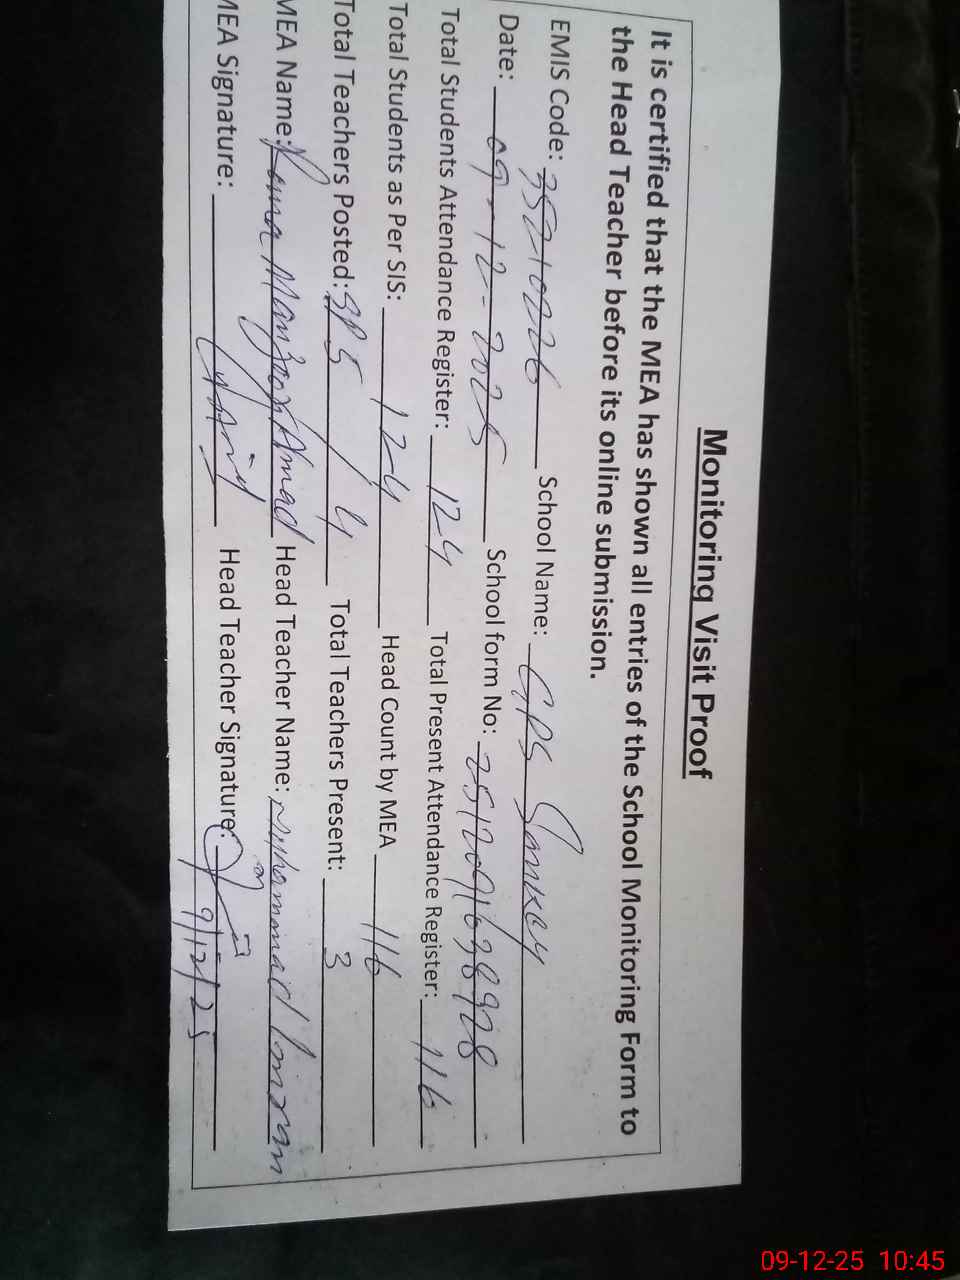 Monitoring Visit Proof
It is certified that the MEA has shown all entries of the School Monitoring Form to
the Head Teacher before its online submission.
EMIS Code: 35210226 School Name: GPS
Date: 09-12-2025 School form No: 2512091638928
Total Students Attendance Register: 124 Total Present Attendance Register: 116
Total Students as Per SIS: 124 Head Count by MEA 116
Total Teachers Posted: 4 Total Teachers Present: 3
MEA Name: Manzoor Ahmad Head Teacher Name: Muhammad Imran
MEA Signature: Head Teacher Signature:
9/12/25
09-12-25 10:45